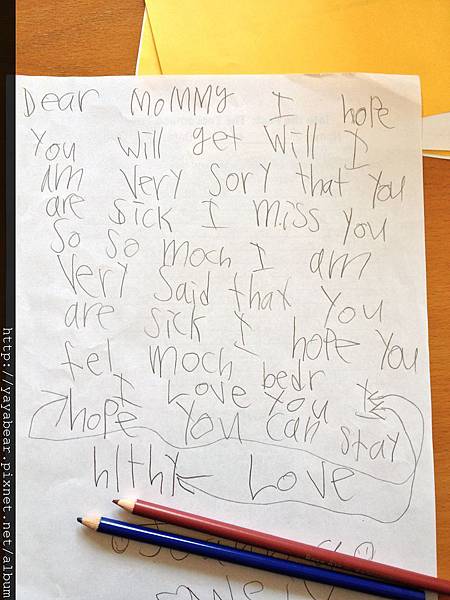 Dear MoMMy I hope
You will get will I
am very sory that you
are sick I miss you
so so moch I am
very said that you
are sick I hope you
fel moch bedr
I Love you
hope you can stay
hlthy Love
http://yayabear.pixnet.net/album